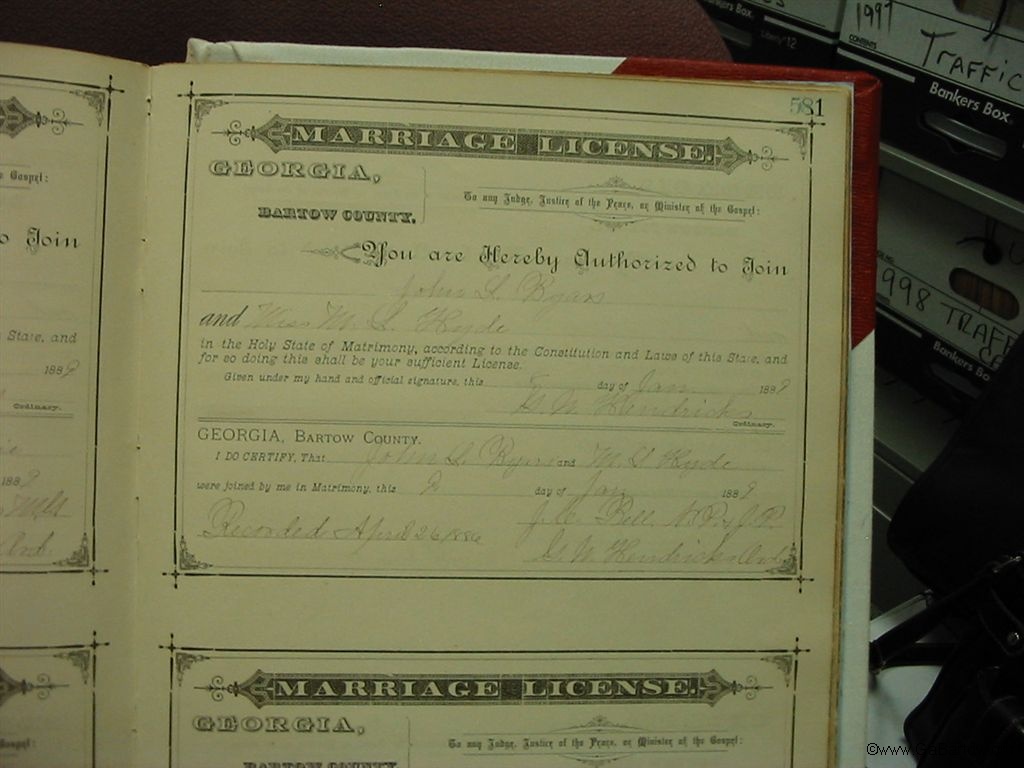 581
MARRIAGE LICENSE.
GEORGIA,
BARTOW COUNTY.
To any Judge, Justice of the Peace, or Minister of the Gospel:
You are Hereby Authorized to Join
John S. Byars
and Miss M. S. Hyde
in the Holy State of Matrimony, according to the Constitution and Laws of this State, and
for so doing this shall be your sufficient License.
Given under my hand and official signature, this day of Jan 1889
G. W. Hendricks
Ordinary.
GEORGIA, BARTOW COUNTY.
I DO CERTIFY, That John S. Byars and M. S. Hyde
were joined by me in Matrimony, this day of Jan 1889
Bell N.P. & J.P.
Recorded April 26
G. W. Hendricks Ord
MARRIAGE LICENSE.
GEORGIA,
BARTOW COUNTY.
To any Judge, Justice of the Peace, or Minister of the Gospel:
Gospel:
Join
State, and
1889
Ordinary.
1889
Ord.
Gospel:
Bankers Box
Liberty 12
1997
CONTENTS
TRAFFIC
Bankers Box
998 TRAFF
Bankers Bo
©www